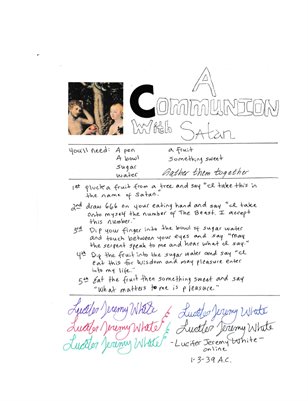 A
COMMUNION
With Satan
You'll need: A pen a fruit
A bowl Something sweet
Sugar
water Gather them together
1st pluck a fruit from a tree and say "I'll take this in
the name of Satan."
2nd draw 666 on your eating hand and say "I'll take
onto myself the number of The Beast. I accept
this number."
3rd Dip your finger into the bowl of sugar water
and touch between your eyes and say "may
the serpent speak to me and hear what I'll say."
4th Dip the fruit into the sugar water and say "I'll
eat this for wisdom and may pleasure enter
into my life."
5th Eat the fruit then something sweet and say
"What matters to me is pleasure."
Lucifer Jeremy White Lucifer Jeremy White
Lucifer Jeremy White Lucifer Jeremy White
Lucifer Jeremy White -Lucifer Jeremy White-
online
1-3-39 A.C.